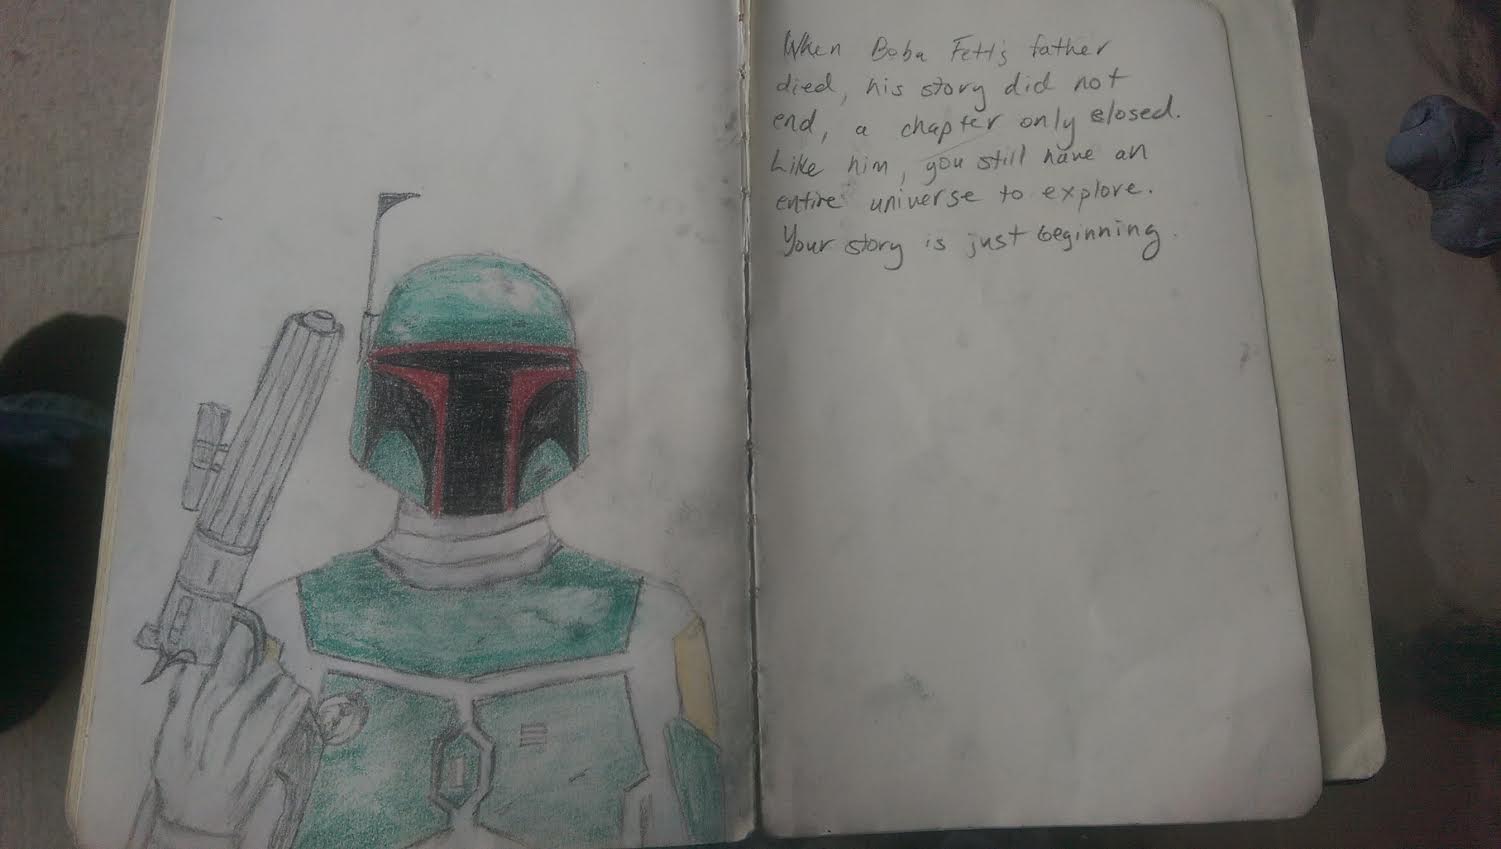 When Boba Fett's father
died, his story did not
end, a chapter only closed.
Like him, you still have an
entire universe to explore.
Your story is just beginning.